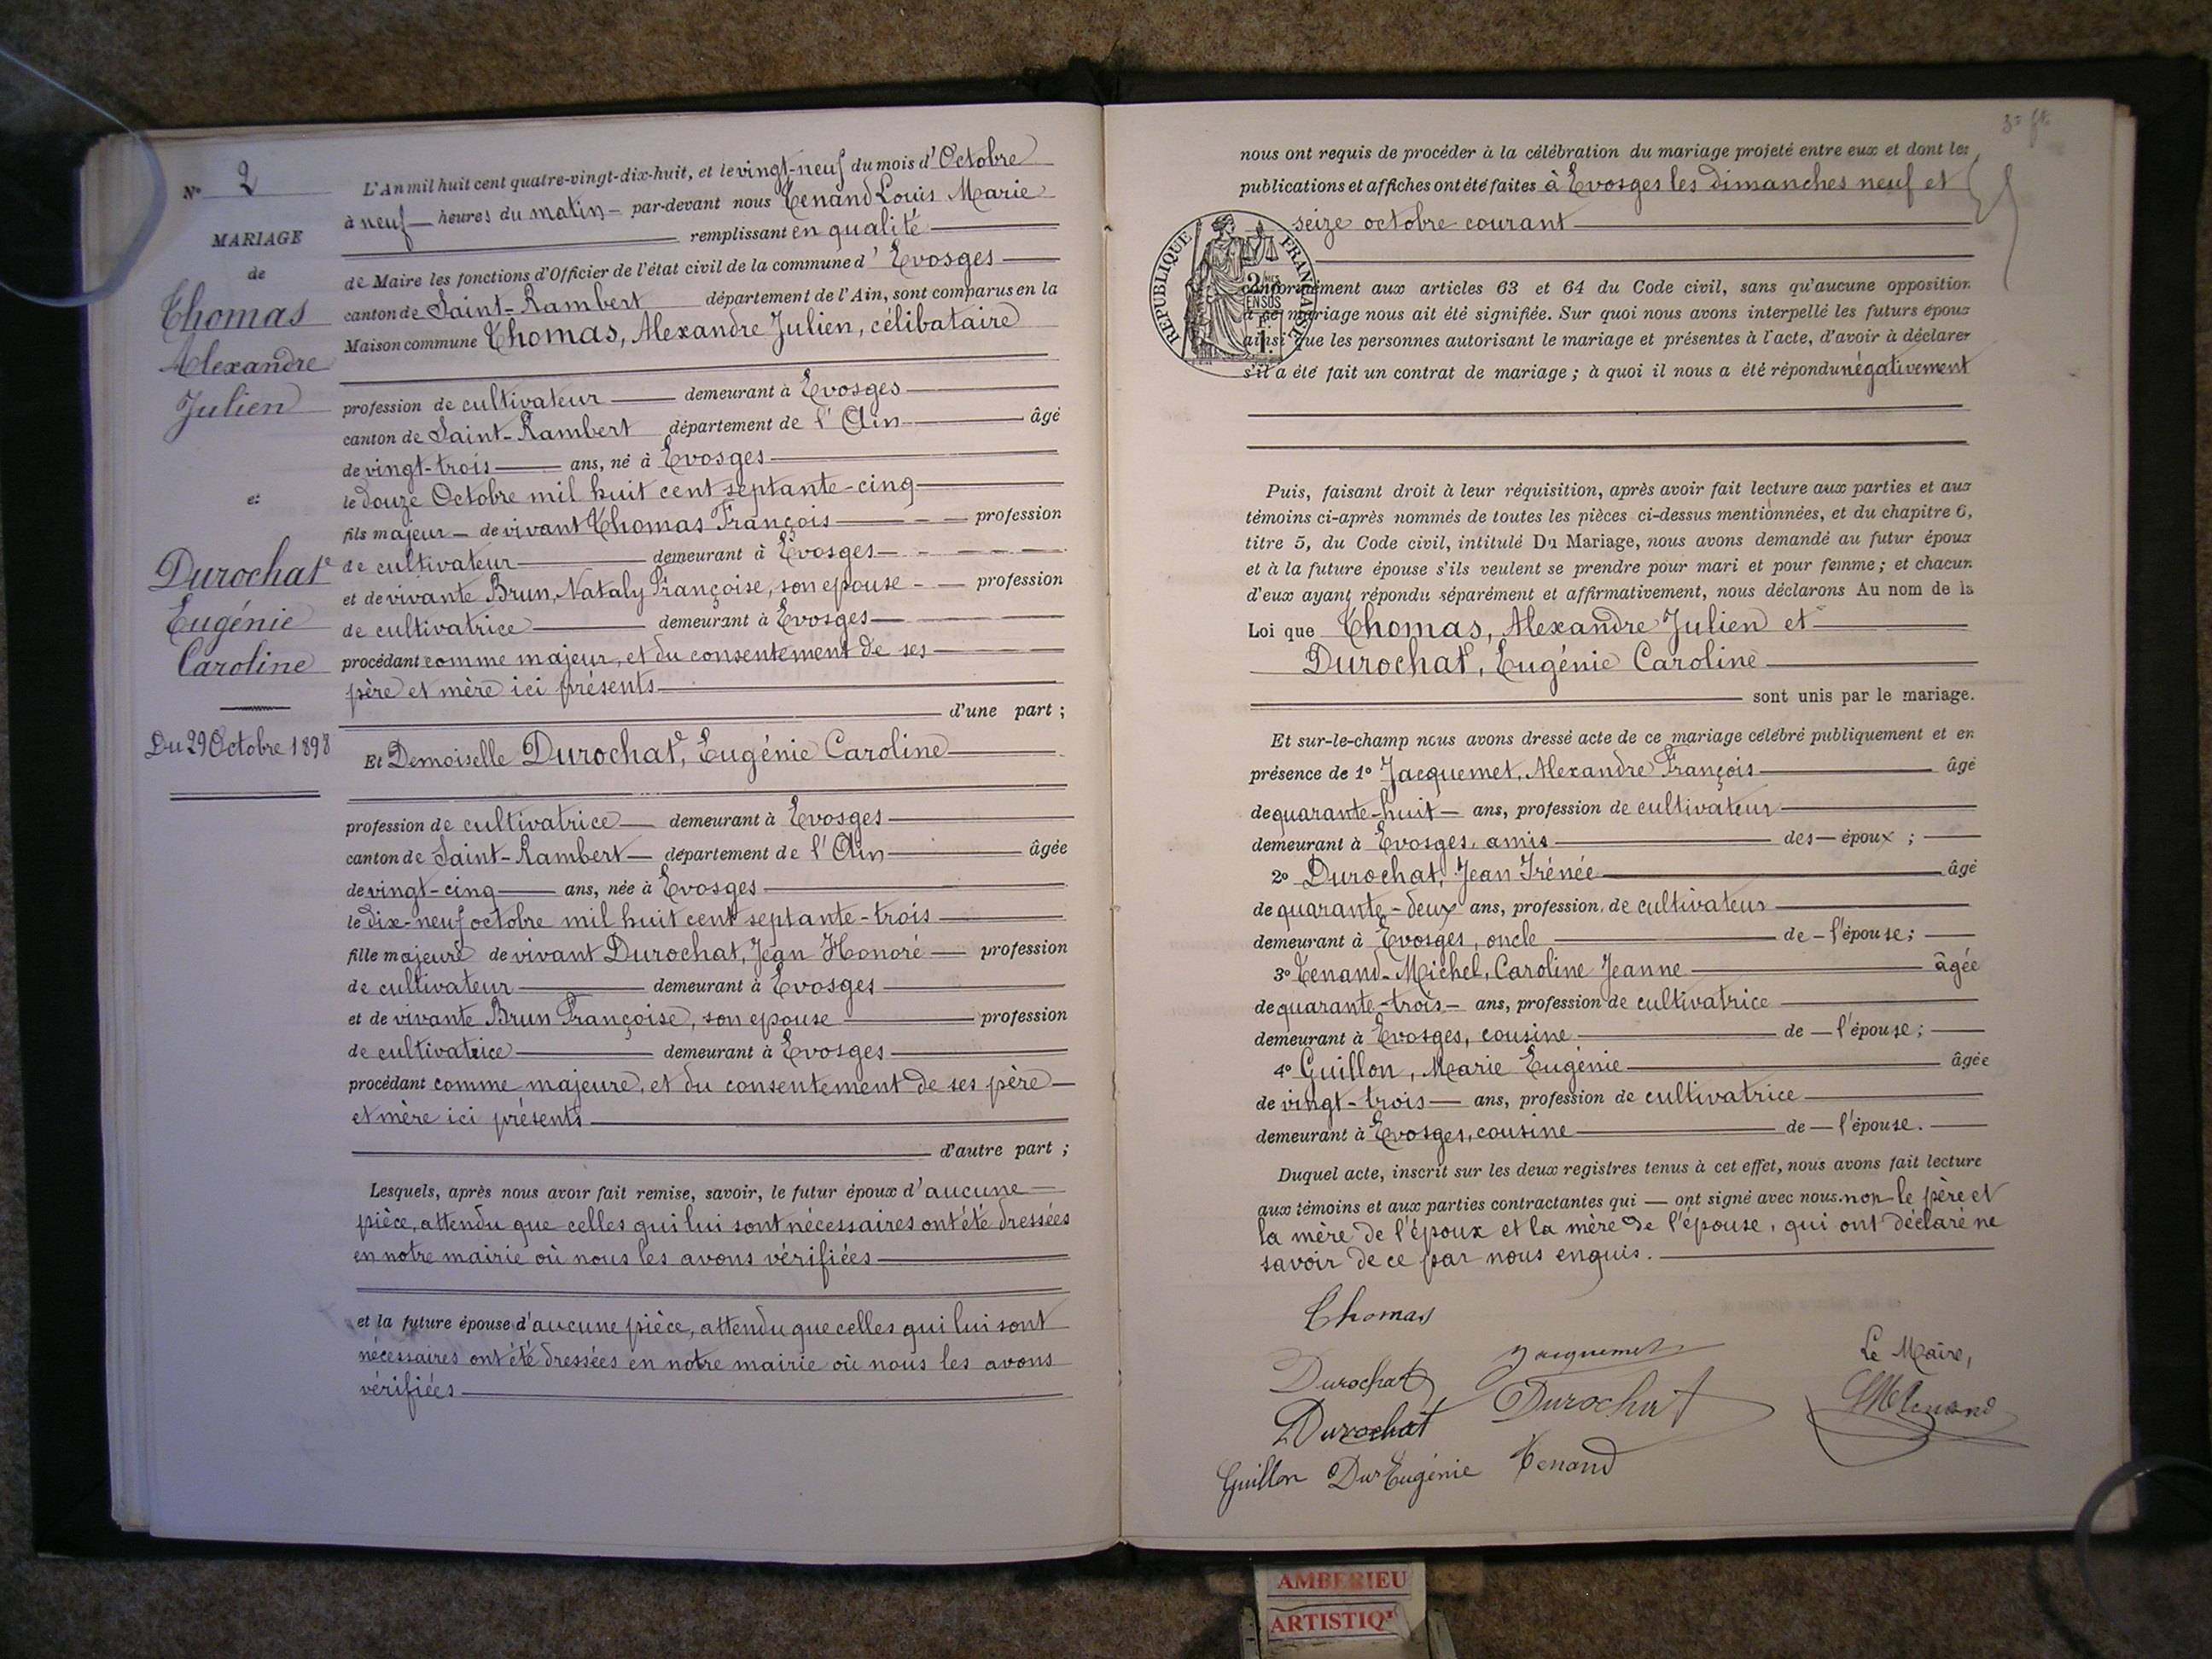 N° 2
MARIAGE
de
Thomas
Alexandre
Julien
et
Durochat
Eugénie
Caroline
Du 29 Octobre 1898
L'An mil huit cent quatre-vingt-dix-huit, et le vingt-neuf du mois d'Octobre
à neuf heures du matin par-devant nous Tenand Louis Marie
remplissant en qualité
de Maire les fonctions d'Officier de l'état civil de la commune d'Evosges
canton de Saint-Rambert département de l'Ain, sont comparus en la
Maison commune Thomas, Alexandre Julien, célibataire
profession de cultivateur demeurant à Evosges
canton de Saint-Rambert département de l'Ain âgé
de vingt-trois ans, né à Evosges
le douze Octobre mil huit cent septante-cinq
fils majeur de vivant Thomas François profession
de cultivateur demeurant à Evosges
et de vivante Brun, Nataly Françoise, son epouse profession
de cultivatrice demeurant à Evosges
procédant comme majeur, et du consentement de ses
père et mère ici présents
d'une part ;
Et Demoiselle Durochat, Eugénie Caroline
profession de cultivatrice demeurant à Evosges
canton de Saint-Rambert département de l'Ain âgée
de vingt-cinq ans, née à Evosges
le dix-neuf octobre mil huit cent septante-trois
fille majeure de vivant Durochat, Jean Honoré profession
de cultivateur demeurant à Evosges
et de vivante Brun Françoise, son epouse profession
de cultivatrice demeurant à Evosges
procédant comme majeure, et du consentement de ses père
et mère ici présents
d'autre part ;
Lesquels, après nous avoir fait remise, savoir, le futur époux d'aucune
pièce, attendu que celles qui lui sont nécessaires ont été dressées
en notre mairie où nous les avons vérifiées
et la future épouse d'aucune pièce, attendu que celles qui lui sont
nécessaires ont été dressées en notre mairie où nous les avons
vérifiées
nous ont requis de procéder à la célébration du mariage projeté entre eux et dont les
publications et affiches ont été faites à Evosges les dimanches neuf et
seize octobre courant
RÉPUBLIQUE FRANÇAISE
conformément aux articles 63 et 64 du Code civil, sans qu'aucune opposition
à ce mariage nous ait été signifiée. Sur quoi nous avons interpellé les futurs époux
ainsi que les personnes autorisant le mariage et présentes à l'acte, d'avoir à déclarer
s'il a été fait un contrat de mariage ; à quoi il nous a été répondu négativement
Puis, faisant droit à leur réquisition, après avoir fait lecture aux parties et aux
témoins ci-après nommés de toutes les pièces ci-dessus mentionnées, et du chapitre 6,
titre 5, du Code civil, intitulé Du Mariage, nous avons demandé au futur époux
et à la future épouse s'ils veulent se prendre pour mari et pour femme ; et chacun
d'eux ayant répondu séparément et affirmativement, nous déclarons Au nom de la
Loi que Thomas, Alexandre Julien et
Durochat, Eugénie Caroline
sont unis par le mariage.
Et sur-le-champ nous avons dressé acte de ce mariage célébré publiquement et en
présence de 1° Jacquemet, Alexandre François âgé
de quarante-huit ans, profession de cultivateur
demeurant à Evosges, amis des époux ;
2° Durochat, Jean Irénée âgé
de quarante-deux ans, profession de cultivateur
demeurant à Evosges, oncle de l'épouse ;
3° Tenand-Michel, Caroline Jeanne âgée
de quarante-trois ans, profession de cultivatrice
demeurant à Evosges, cousine de l'épouse ;
4° Guillon, Marie Eugénie âgée
de vingt-trois ans, profession de cultivatrice
demeurant à Evosges, cousine de l'épouse.
Duquel acte, inscrit sur les deux registres tenus à cet effet, nous avons fait lecture
aux témoins et aux parties contractantes qui ont signé avec nous non le père et
la mère de l'époux et la mère de l'épouse, qui ont déclaré ne
savoir de ce par nous enquis.
Thomas
Durochat Jacquemet Le Maire,
Durochat Durochat Tenand
Guillon Dur Eugénie Tenand
AMBERIEU
ARTISTIQ